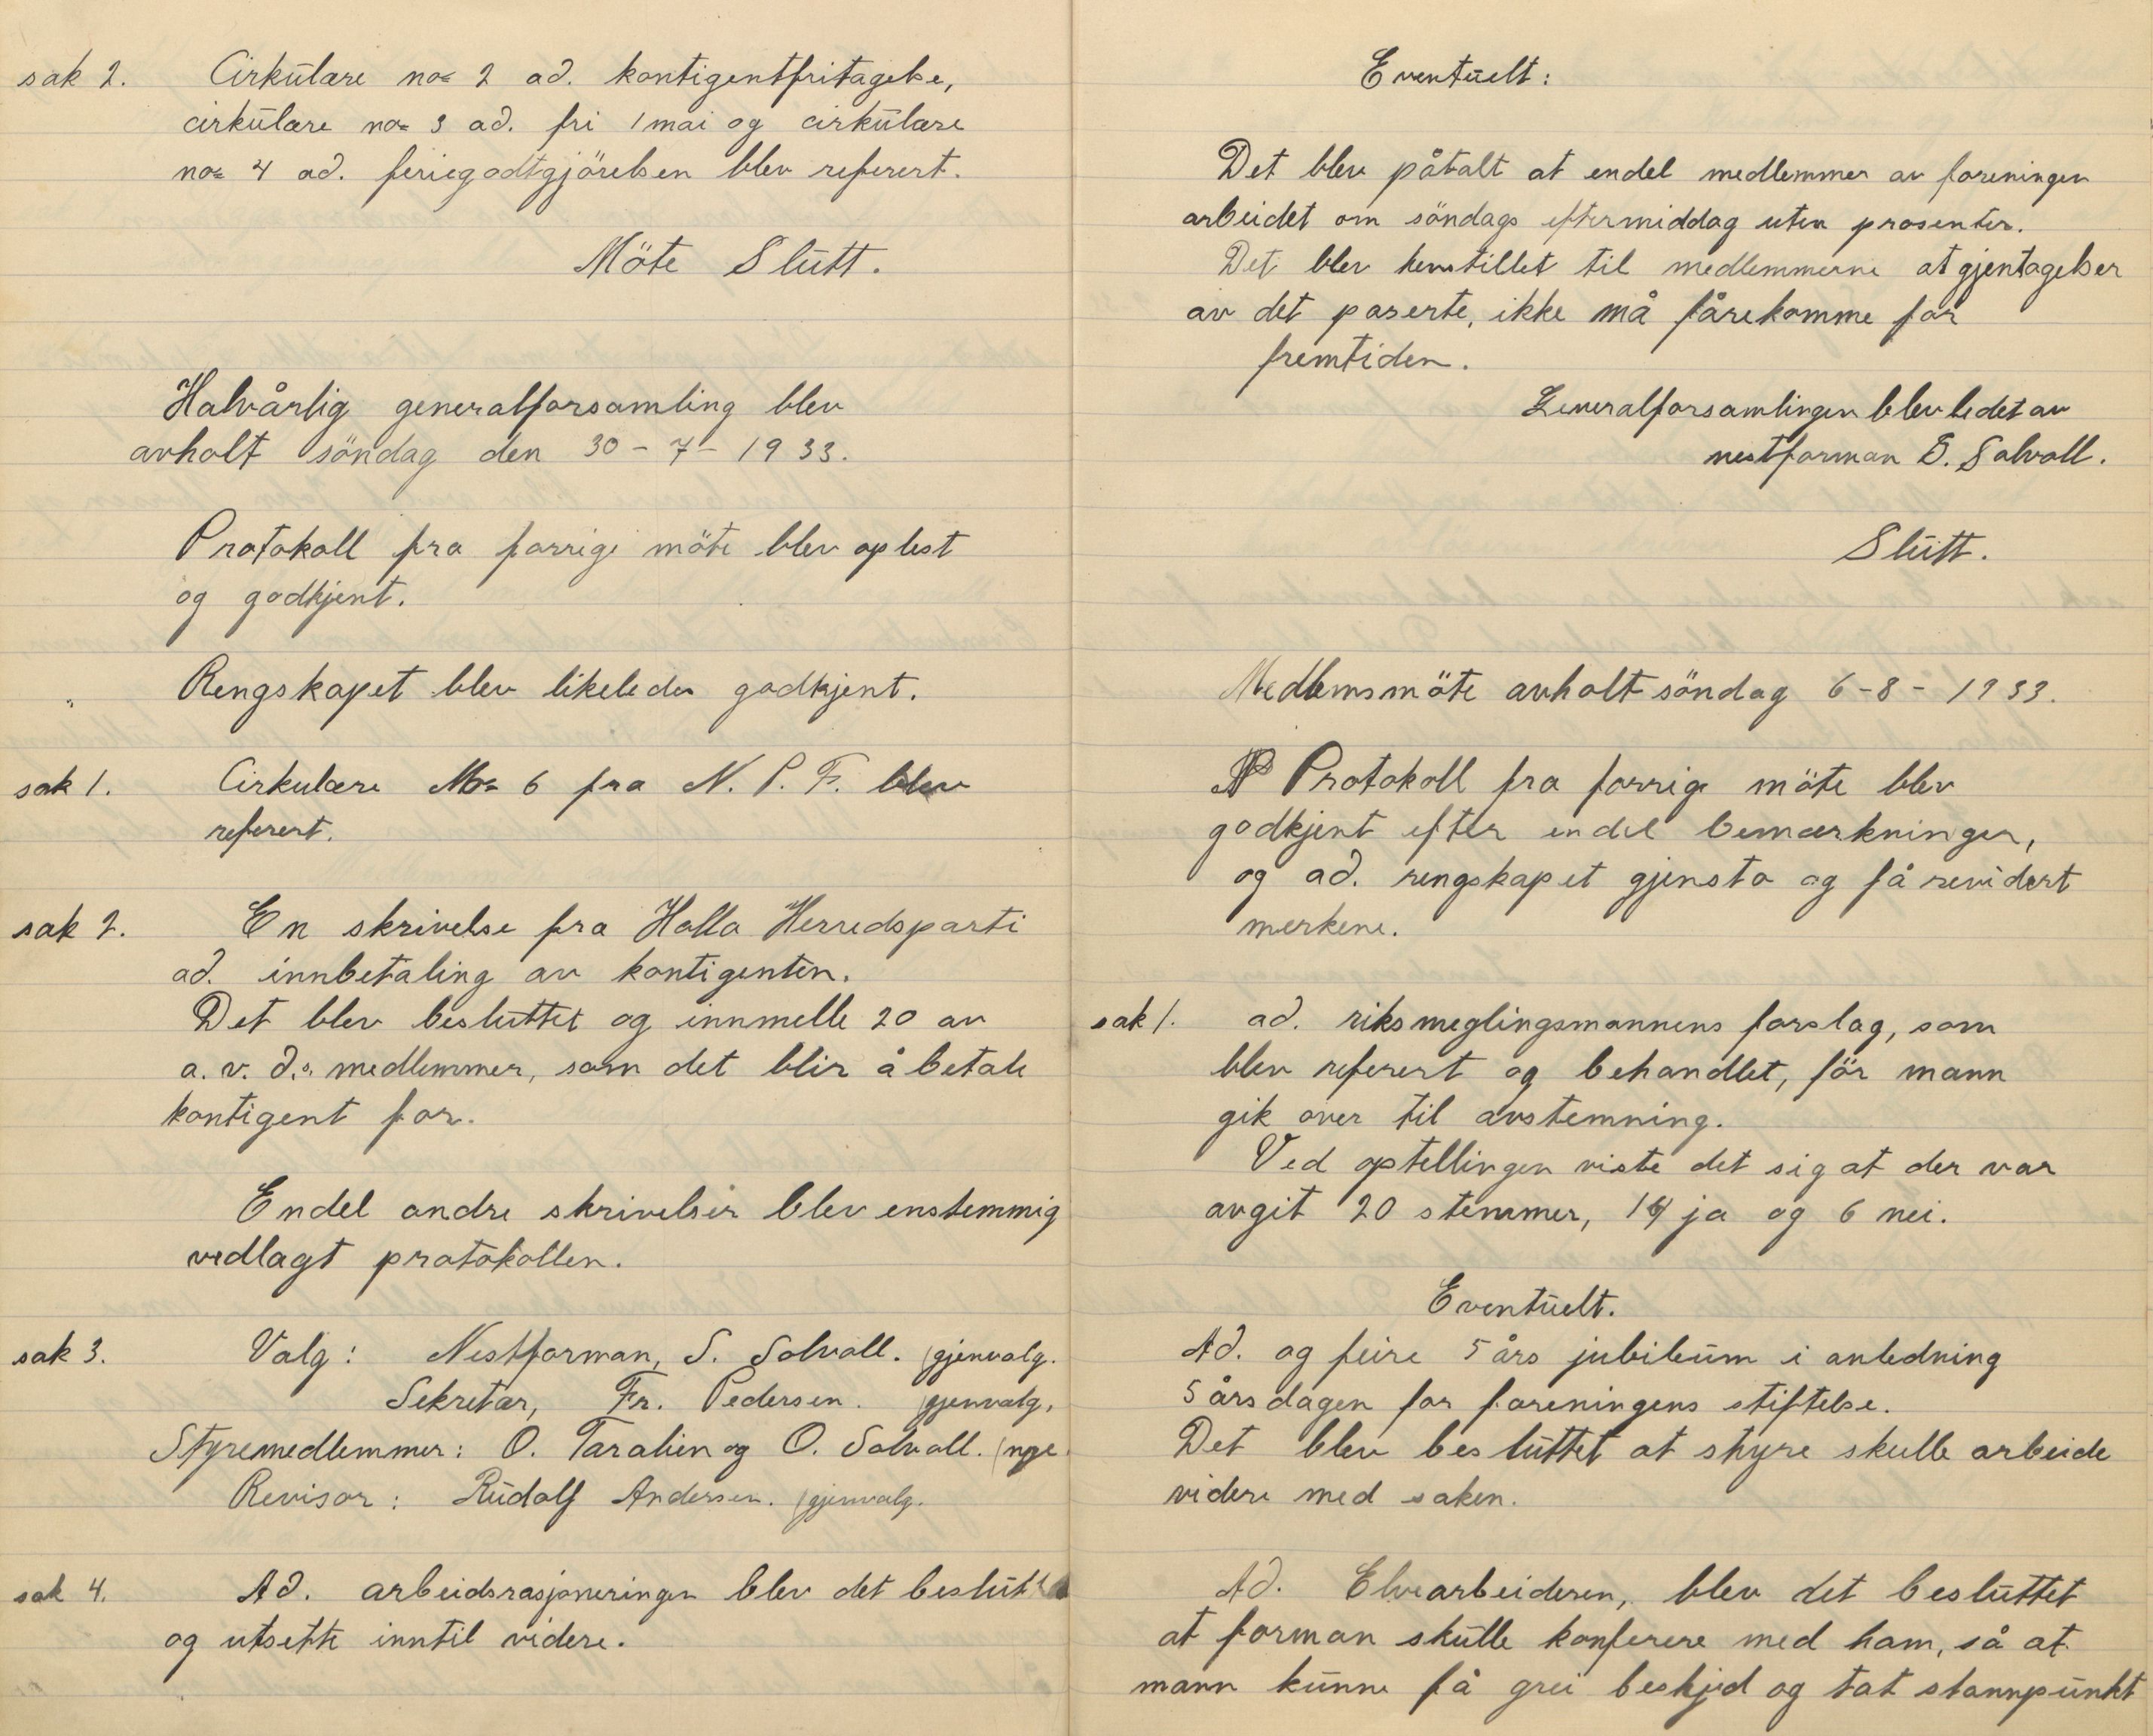 sak 2. Cirkülære no= 2 ad. kontigentfritagelse,
cirkülære no= 3 ad. fri 1 mai og cirkülære
no= 4 ad. feriegodtgjörelsen blev referert.
Möte Slütt.
Halvårlig generalforsamling blev
avholt söndag den 30 - 7 - 1933.
Protokoll fra forrige möte blev oplest
og godkjent.
Rengskapet blev likeledes godkjent.
sak 1. Cirkulære No= 6 fra N. P. F. blev
referert.
sak 2. En skrivelse fra Holla Herredsparti
ad. innbetaling av kontigenten.
Det blev besluttet og innmelle 20 av
a. v. d.s. medlemmer, som det blir å betale
kontigent for.
Endel andre skrivelser blev enstemmig
vedlagt protokollen.
sak 3. Valg: Nestforman, S. Solvoll. (gjenvalg.
Sekretær, Fr. Pedersen. (gjenvalg,
Styremedlemmer: O. Taralien og O. Solvoll. (nye.
Revisor: Rüdolf Andersen. (gjenvalg.
sak 4. Ad. arbeidsrasjoneringen blev det beslütt
og utsette inntil videre.
Eventüelt:
Det blev påtalt at endel medlemmer av foreningen
arbeidet om söndags eftermiddag uten prosenter.
Det blev henstillet til medlemmerne at gjentagelser
av det paserte, ikke må fårekomme for
fremtiden.
Generalforsamlingen blev ledet av
nestforman S. Solvoll.
Slütt.
Medlemsmöte avholt söndag 6-8- 1933.
Protokoll fra forrige möte blev
godkjent efter endel bemærkninger,
og ad. rengskapet gjensto og få revidert
merkene.
sak 1. ad. riksmeglingsmannens forslag, som
blev referert og behandlet, för mann
gik over til avstemning.
Ved optellingen viste det sig at der var
avgit 20 stemmer, 14 ja og 6 nei.
Eventüelt.
Ad. og feire 5 års jubileüm i anledning
5 årsdagen for foreningens stiftelse.
Det blev beslüttet at styre skulle arbeide
videre med saken.
Ad. Elvearbeideren, blev det beslüttet
at forman skülle konferere med ham, så at
mann künne få grei beskjed og tat stannpünkt